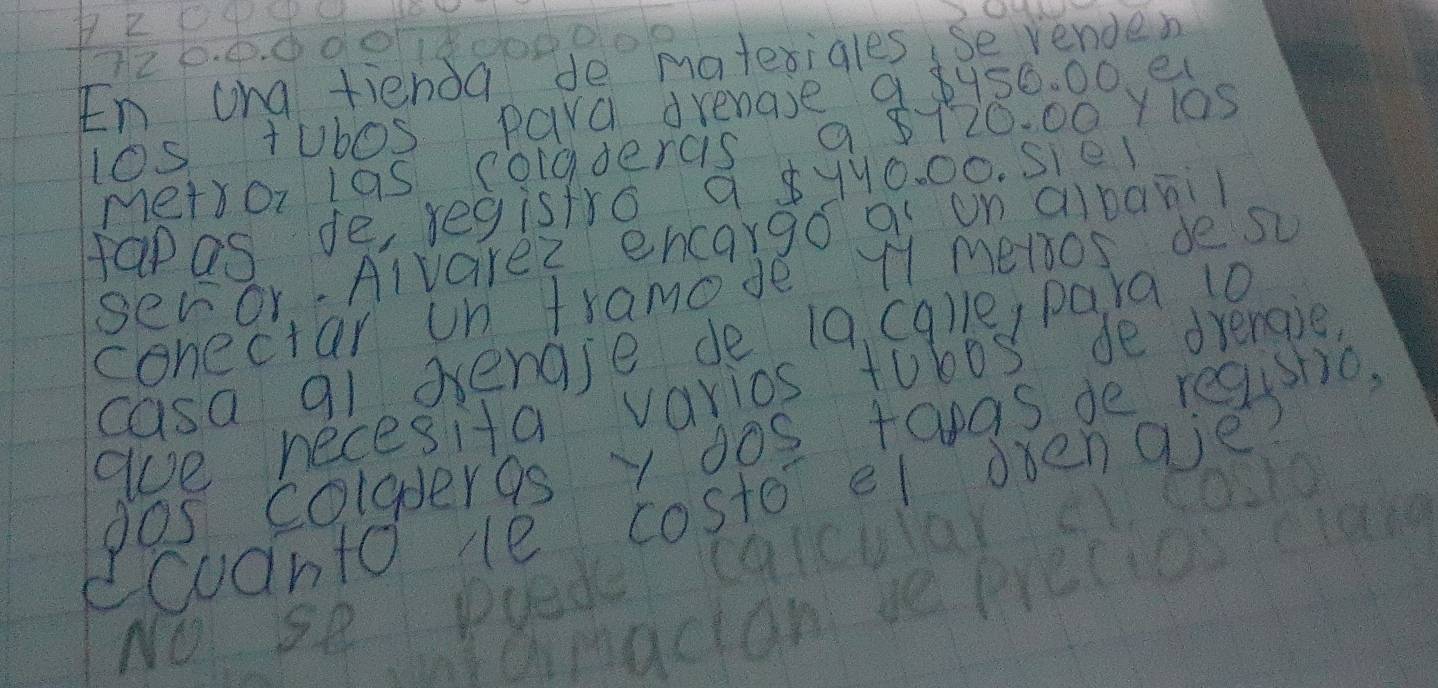 72
720.0.000
En una tienda de materiales, se venden
los tubos para drenaje a $450.00 el
metro, las coladeras a $720.00 y las
tapas de registro a $440.00. si el
señor. Alvarez encargó a un albañil
conectar un tramo de 41 metros de su
casa al drenaje de la calle, para lo
que necesita varios tubos de drenaje,
dos coladeras y dos tapas de registro,
¿cuanto le costó el drenaje?
No se puede calcular el costo
informacian de precios clara